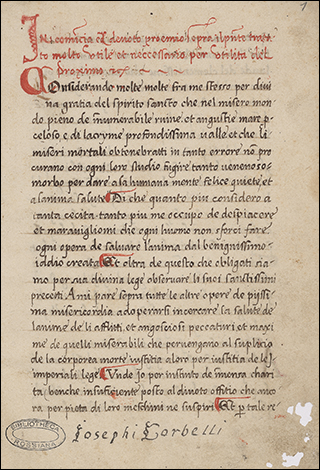 1
Incomincia el devoto proemio sopra il pñte tratta
to molto utile et neccessario per utilita del
proximo
Considerando molte molte fra me stesso per divi
na gratia del spirito sancto che nel misero mon
do pieno de innumerabile ruine et angustie mar
celoso e di lacryme profondissima valle et che li
miseri mortali obtenebrati in tanto errore nõ pro
curano con ogni loro studio fugire tanto venenoso
morbo per dare a la humana mente felice quiete et
a lanima salute Di che quanto piu considero a
tanta cecita tanto piu me occupo de despiacere
et maravigliomi che ogni huomo non sforci fare
ogni opera de salvare lanima dal benignissimo
iddio creata Et oltra de questo che obligati sia
mo per sua divina lege observare li suoi sanctissimi
precepti A mi pare sopra tutte le altre opere de pijssi
ma misericordia adoperarsi incercare la salute de
lanime de li afflicti et angosciosi peccatori et maxi
me de quelli miserabili che pervengano al suplicio
de la corporea morte iustitia a loro per iustitia de le
imperiali lege Unde Jo per instincto de immensa chari
ta benche insufficiente posto al divoto offitio che anco
ra per pieta di loro meschini ne suspiri Et per tale re
BIBLIOTHECA
ROSSIANA
Josephi Corbelli